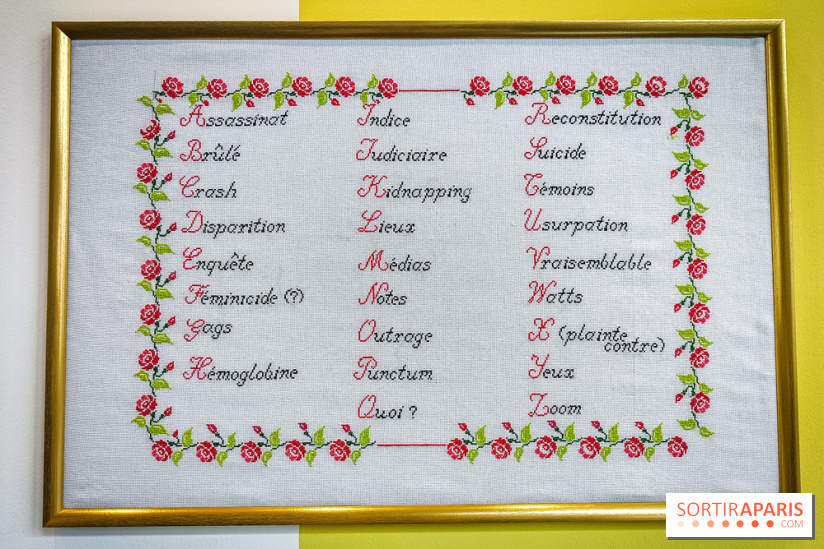 Assassinat
Brûlé
Crash
Disparition
Enquête
Féminicide (?)
Gags
Hémoglobine
Indice
Judiciaire
Kidnapping
Lieux
Médias
Notes
Outrage
Punctum
Quoi ?
Reconstitution
Suicide
Témoins
Usurpation
Vraisemblable
Watts
X (plainte
contre)
Yeux
Zoom
SORTIRAPARIS
.COM